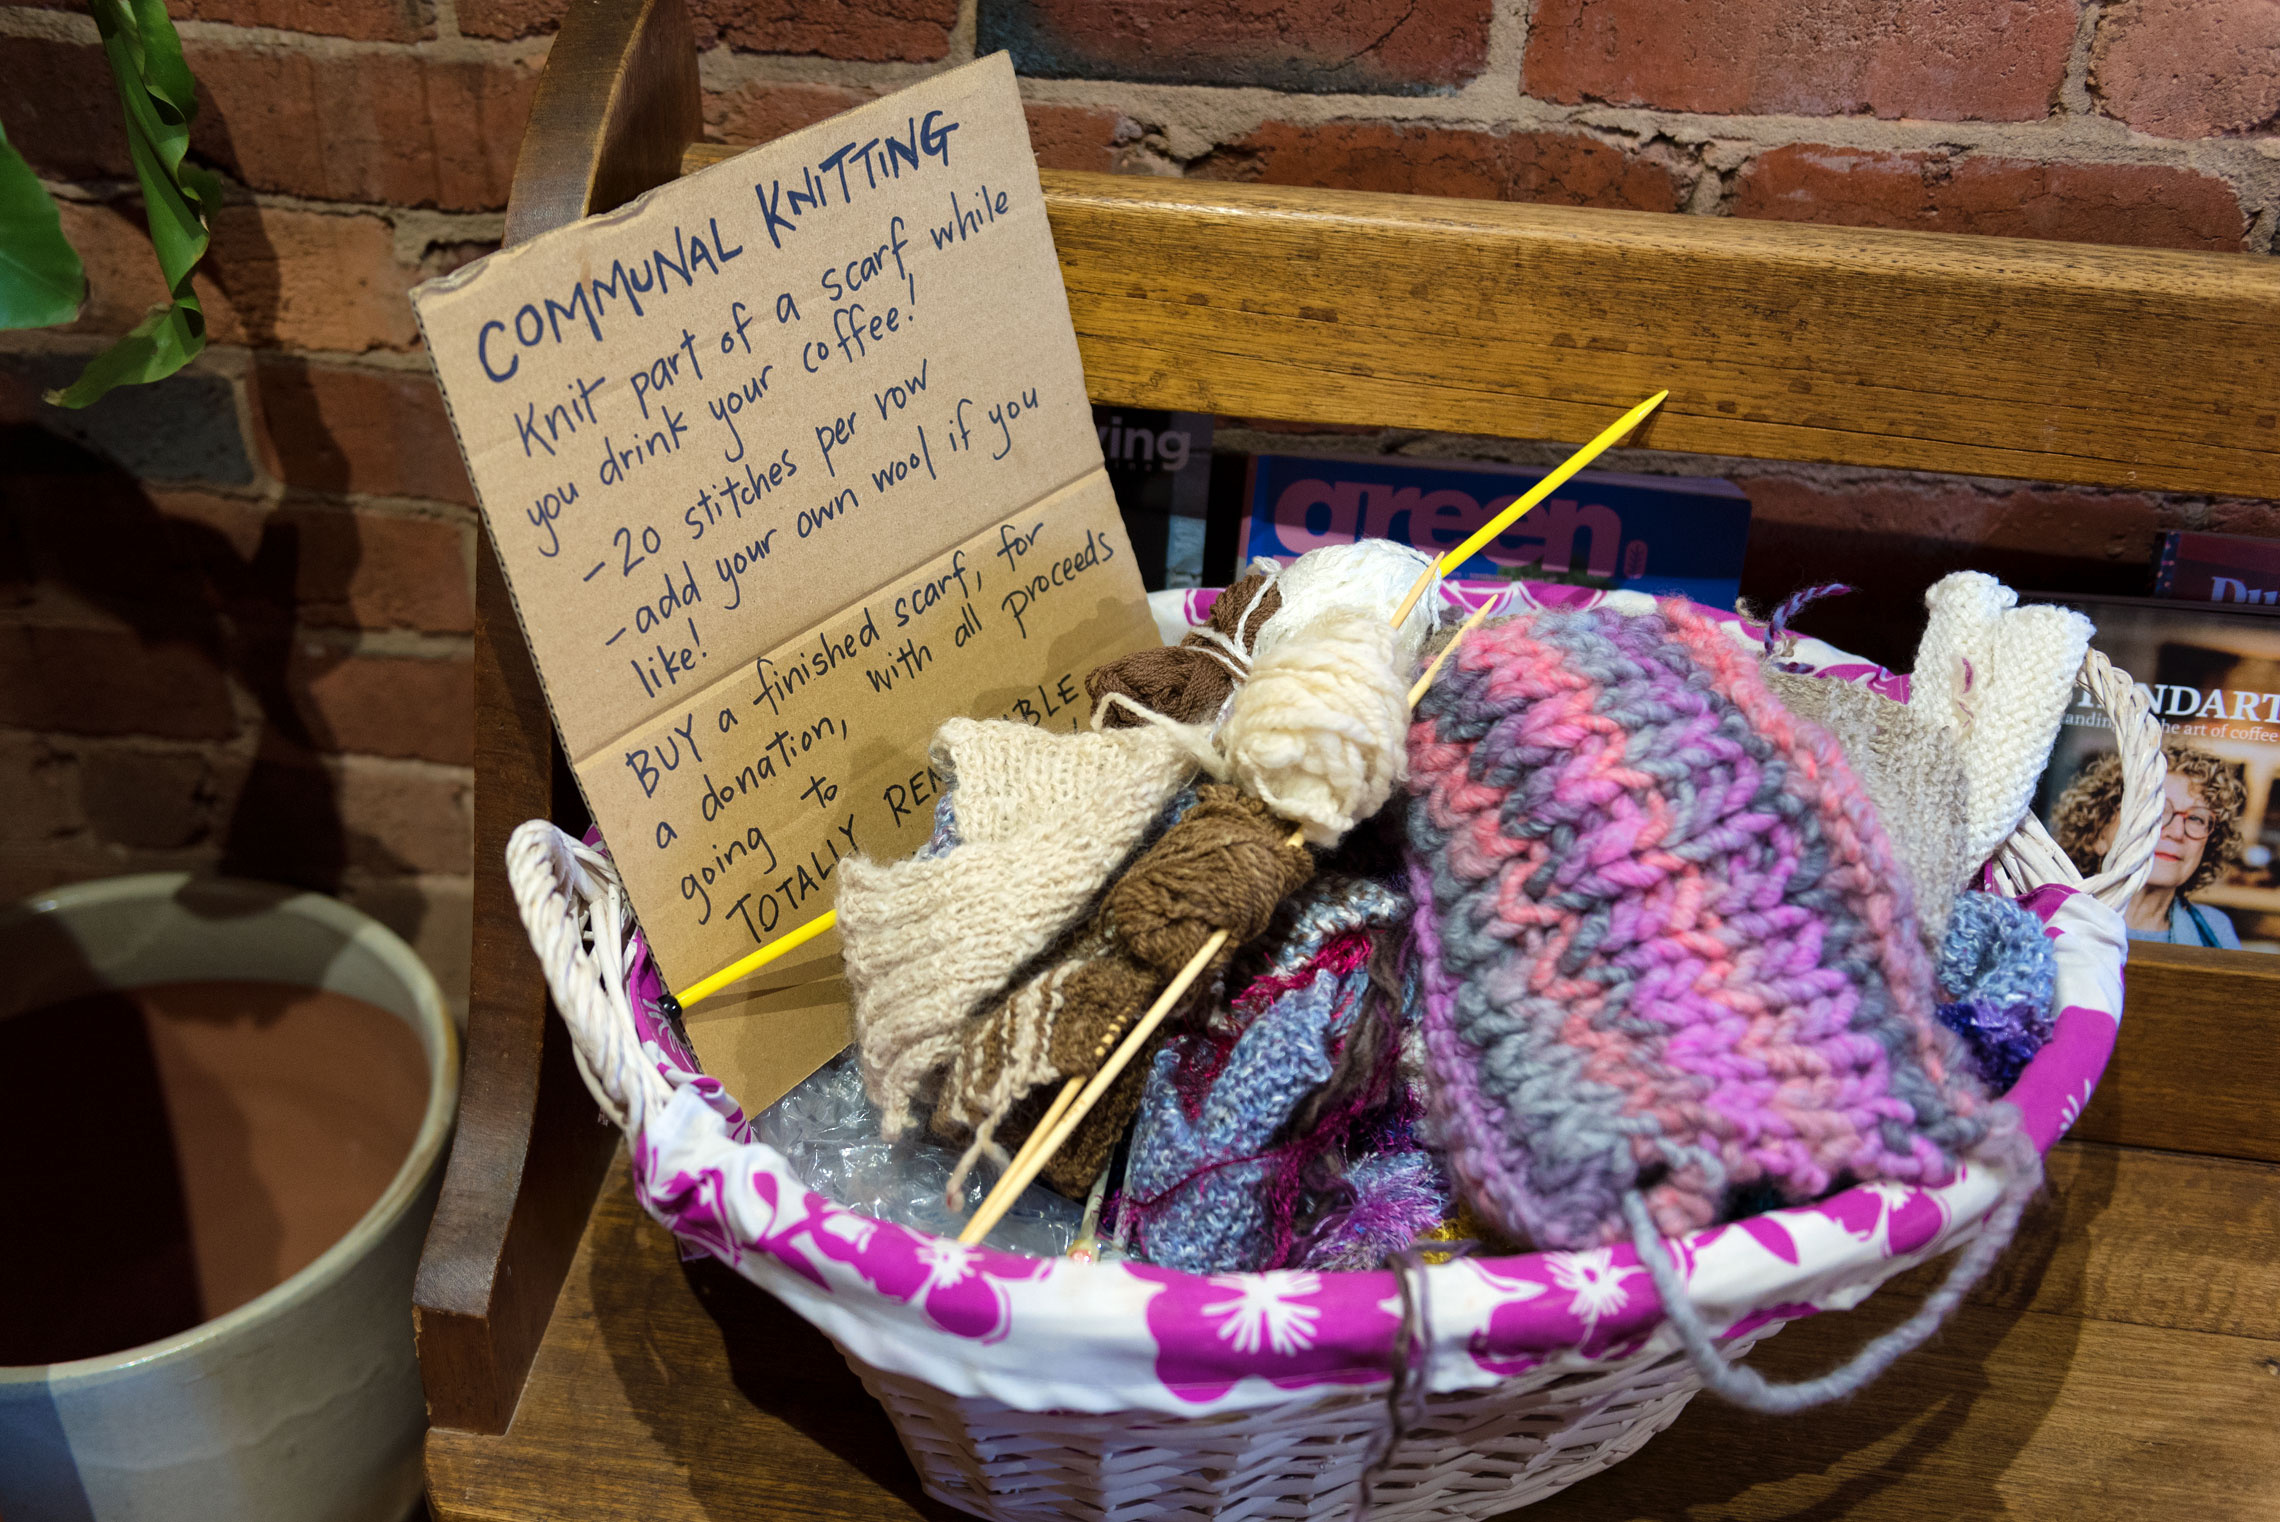 COMMUNAL KNITTING
Knit part of a scarf while
you drink your coffee!
-20 stitches per row
-add your own wool if you
like!
BUY a finished scarf, for
a donation, with all proceeds
going to
TOTALLY
green
the art of coffee